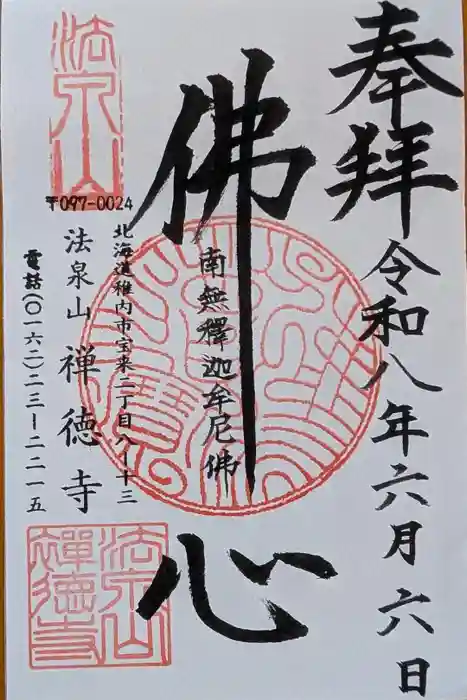 奉拝
令和八年六月六日
佛心
南無釋迦牟尼佛
法泉山
〒097-0024
北海道稚内市宝来二丁目八ー十三
法泉山 禅徳寺
電話(〇一六二)二三ー二二一五
法泉山
禪德寺